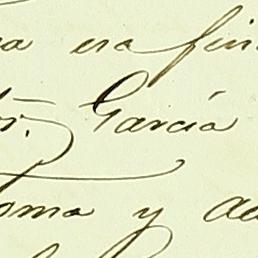 a era fin
r. García
oma y ad